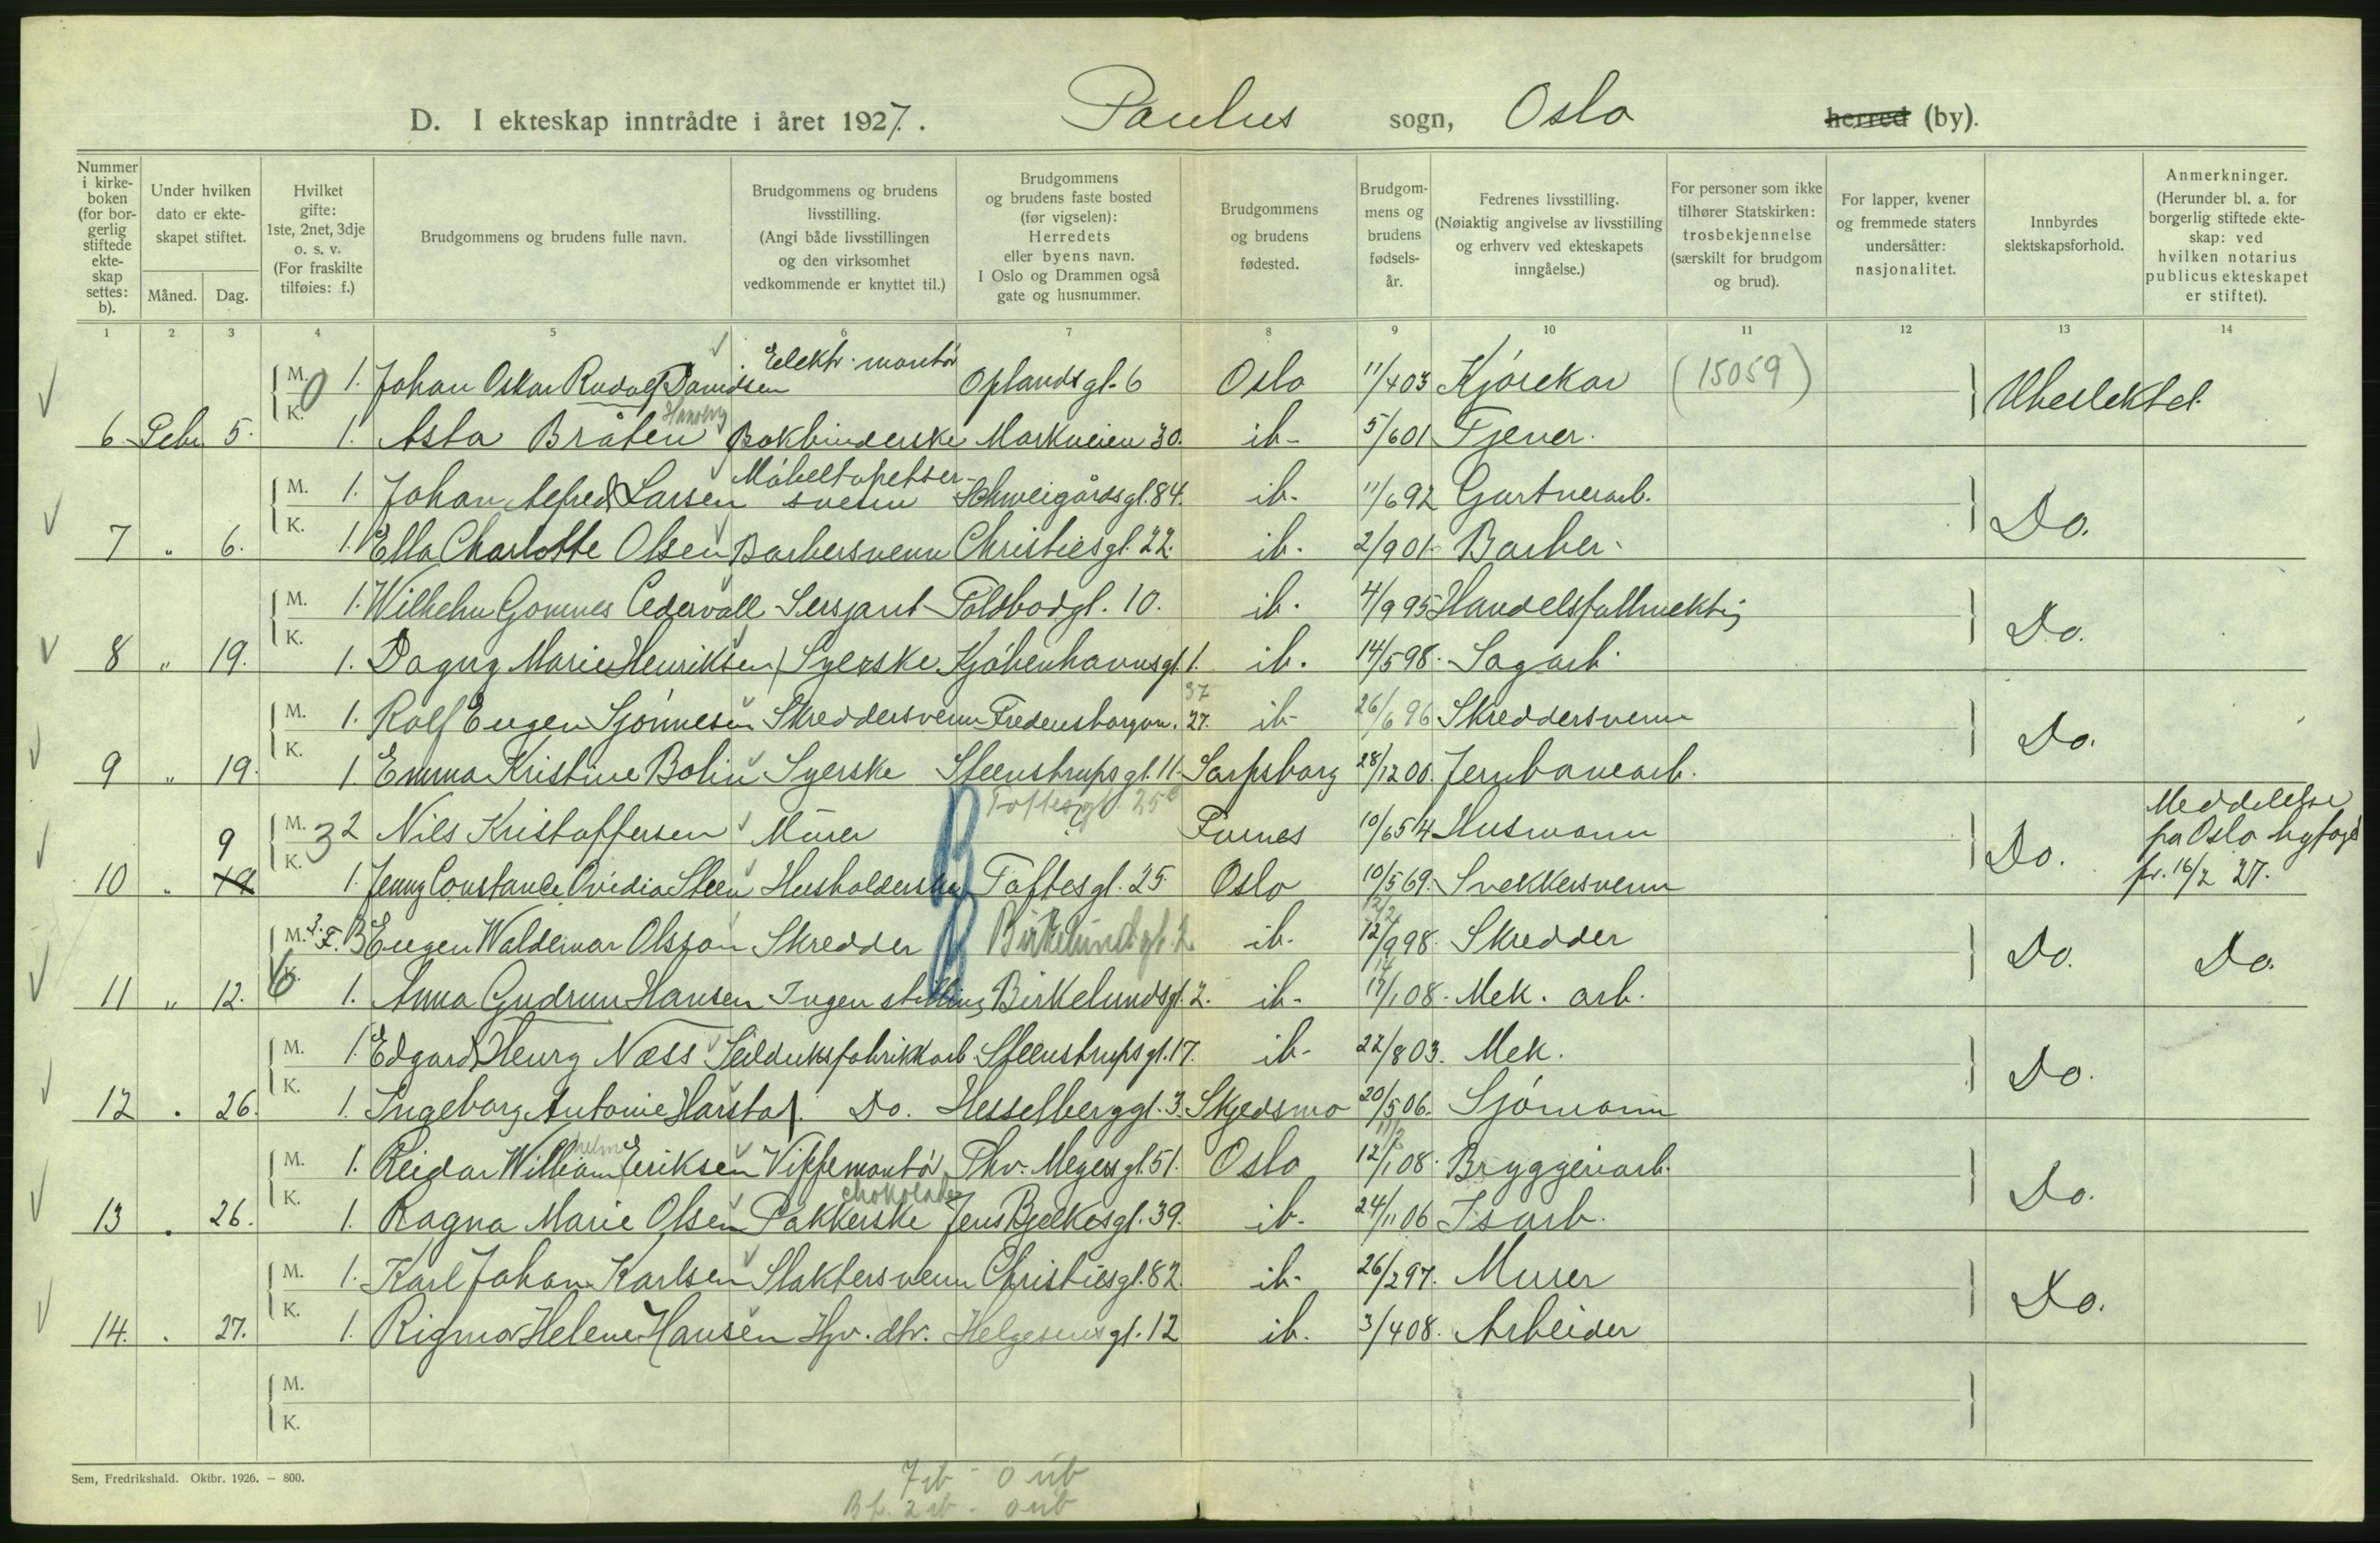 D. I ekteskap inntrådte i året 1927. Paulus sogn, Oslo herred (by).
Nummer i kirkeboken (for borgerlig stiftede ekteskap settes: b).
Under hvilken dato er ekteskapet stiftet.
Måned. Dag.
Hvilket gifte: 1ste, 2net, 3dje o. s. v. (For fraskilte tilføies: f.)
Brudgommens og brudens fulle navn.
Brudgommens og brudens livsstilling. (Angi både livsstillingen og den virksomhet vedkommende er knyttet til.)
Brudgommens og brudens faste bosted (før vigselen): Herredets eller byens navn. I Oslo og Drammen også gate og husnummer.
Brudgommens og brudens fødested.
Brudgommens og brudens fødselsår.
Fedrenes livsstilling. (Nøiaktig angivelse av livsstilling og erhverv ved ekteskapets inngåelse.)
For personer som ikke tilhører Statskirken: trosbekjennelse (særskilt for brudgom og brud).
For lapper, kvener og fremmede staters undersåtter: nasjonalitet.
Innbyrdes slektskapsforhold.
Anmerkninger. (Herunder bl. a. for borgerlig stiftede ekteskap: ved hvilken notarius publicus ekteskapet er stiftet).
1 2 3 4 5 6 7 8 9 10 11 12 13 14
M. 0 1. Johan Oskar Rudolf Davidsen Elektr. montør Oplandsgt. 6 Oslo 11/4 03 Kjørekar (15059) Ubeslektet
6 Febr 5. K. 1. Asta Bråten Bokbinderske Markveien 30. ib- 5/6 01 Tjener.
M. 1. Johan Alfred Larsen Møbeltapetsersvenn Schweigårdsgt. 84. ib. 11/6 92 Gartnerarb. Do.
7 " 6. K. 1. Ella Charlotte Olsen Barbersvenn Christiesgt. 22. ib. 2/9 01 Barber.
M. 1. Wilhelm Gomnes Cedervall Sersjant Toldbodgt. 10. ib. 4/9 95 Handelsfullmektig Do.
8 " 19. K. 1. Dagny Marie Henriksen Syerske Kjøbenhavnsgt. 1. ib. 14/5 98. Sagarb.
37
M. 1. Rolf Eugen Sjønnesen Skreddersvenn Fredensborgvn. 27. ib- 26/6 96 Skreddersvenn Do.
9 " 19. K. 1. Emma Kristine Bolin Syerske Steenstrupsgt. 11. Sarpsborg 28/12 00. Jernbanearb.
Toftesgt. 25
M. 3 2 Nils Kristoffersen Murer Furnes 10/6 54 Husmann Do. Meddelelse fra Oslo byfogd fr. 16/2 27.
10 " 9 19 K. 1. Jenny Constance Ovidia Steen Husholderske B Toftesgt. 25 Oslo 10/5 69. Snekkersvenn
M. F. Eugen Waldemar Olsson Skredder B Birkelundsgt. 2 ib. 12/9 98. Skredder Do. Do.
11 " 12. K. 1. Anna Gudrun Hansen Ingen stilling Birkelundsgt. 2. ib- 17/1 08. Mek. arb.
M. 1. Edgard Henry Næss Seilduksfabrikkarb. Steenstrupsgt. 17. ib- 22/8 03. Mek. Do.
12 . 26. K. 1. Ingeborg Antonie Harstad. Do. Hesselberggt. 3. Skjedsmo 20/5 06. Sjømann
M. 1. Reidar William Eriksen Vippemontør Thv. Meyersgt. 51. Oslo 12/1 08. Bryggeriarb. Do.
chokolade
13 . 26. K. 1. Ragna Marie Olsen Pakkerske Jens Bjelkesgt. 39. ib- 24/11 06 Isarb.
M. 1. Karl Johan Karlsen Slaktersvenn Christiesgt. 82. ib- 26/2 97. Murer Do.
14. . 27. K. 1. Rigmor Helene Hansen Hjv. dtr. Helgesensgt. 12 ib. 3/4 08. Arbeider
M.
K.
Sem, Fredrikshald. Oktbr. 1926. — 800.
7 ib - 0 uib
2 ib - 0 uib